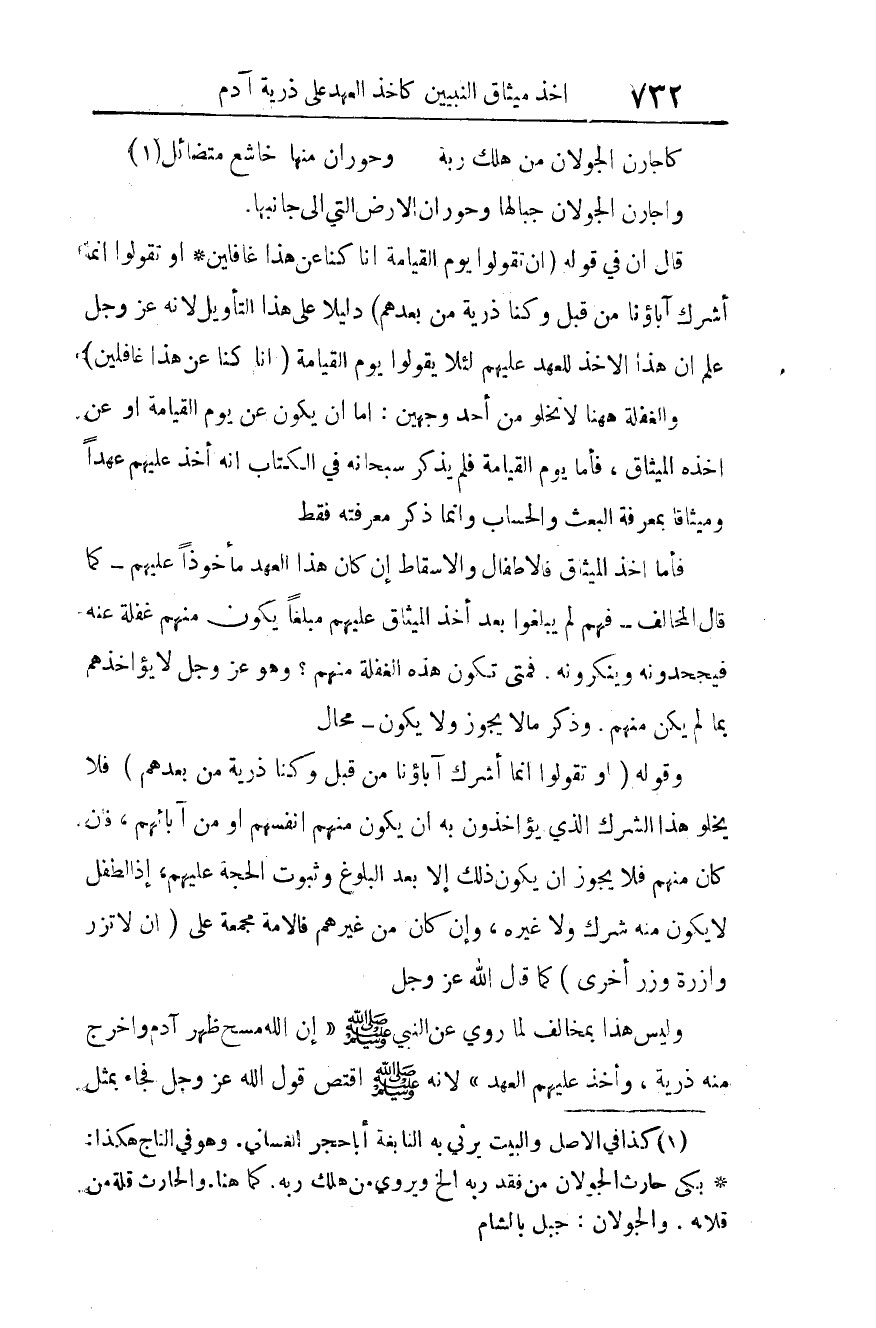 ٧٣٢ اخذ ميثاق النبيين كاخذ العهد على ذرية آدم
كاجارن الجولان من هلك ربة وحوران منها خاشع متضائل (١)
واجارن الجولان جبالها وحوران الارض التي الى جانبها.
قال ان في قوله (ان تقولوا يوم القيامة انا كنا عن هذا غافلين * او تقولوا انما
أشرك آباؤنا من قبل وكنا ذرية من بعدهم) دليلا على هذا التأويل لانه عز وجل
علم ان هذا الاخذ للعهد عليهم لئلا يقولوا يوم القيامة (انا كنا عن هذا غافلين)
والغفلة ههنا لا تخلو من أحد وجهين : اما ان يكون عن يوم القيامة او عن
اخذه الميثاق ، فأما يوم القيامة فلم يذكر سبحانه في الكتاب انه أخذ عليهم عهداً
وميثاقا بمعرفة البعث والحساب وانما ذكر معرفته فقط
فأما اخذ الميثاق فالاطفال والاسقاط إن كان هذا العهد مأخوذاً عليهم ــ كما
قال المخالف ــ فهم لم يبلغوا بعد أخذ الميثاق عليهم مبلغاً يكون منهم غفلة عنه
فيجحدونه وينكرونه . فمتى تكون هذه الغفلة منهم ؟ وهو عز وجل لا يؤاخذهم
بما لم يكن منهم . وذكر مالا يجوز ولا يكون ــ محال
وقوله ( او تقولوا انما أشرك آباؤنا من قبل وكنا ذرية من بعدهم ) فلا
يخلو هذا الشرك الذي يؤاخذون به ان يكون منهم انفسهم او من آبائهم ، فان
كان منهم فلا يجوز ان يكون ذلك إلا بعد البلوغ وثبوت الحجة عليهم، إذ الطفل
لا يكون منه شرك ولا غيره ، وإن كان من غيرهم فالامة مجمعة على ( ان لا تزر
وازرة وزر أخرى ) كما قال الله عز وجل
وليس هذا بمخالف لما روي عن النبي ﷺ « إن الله مسح ظهر آدم واخرج
منه ذرية ، وأخذ عليهم العهد » لانه ﷺ اقتص قول الله عز وجل فجاء بمثل
(١) كذا في الاصل والبيت يرثي به النابغة أبا حجر الغساني. وهو في التاج هكذا:
* بكى حارث الجولان من فقد ربه الخ ويروي من هلك ربه. كما هنا. والحارث قلة من
قلاله . والجولان : جبل بالشام